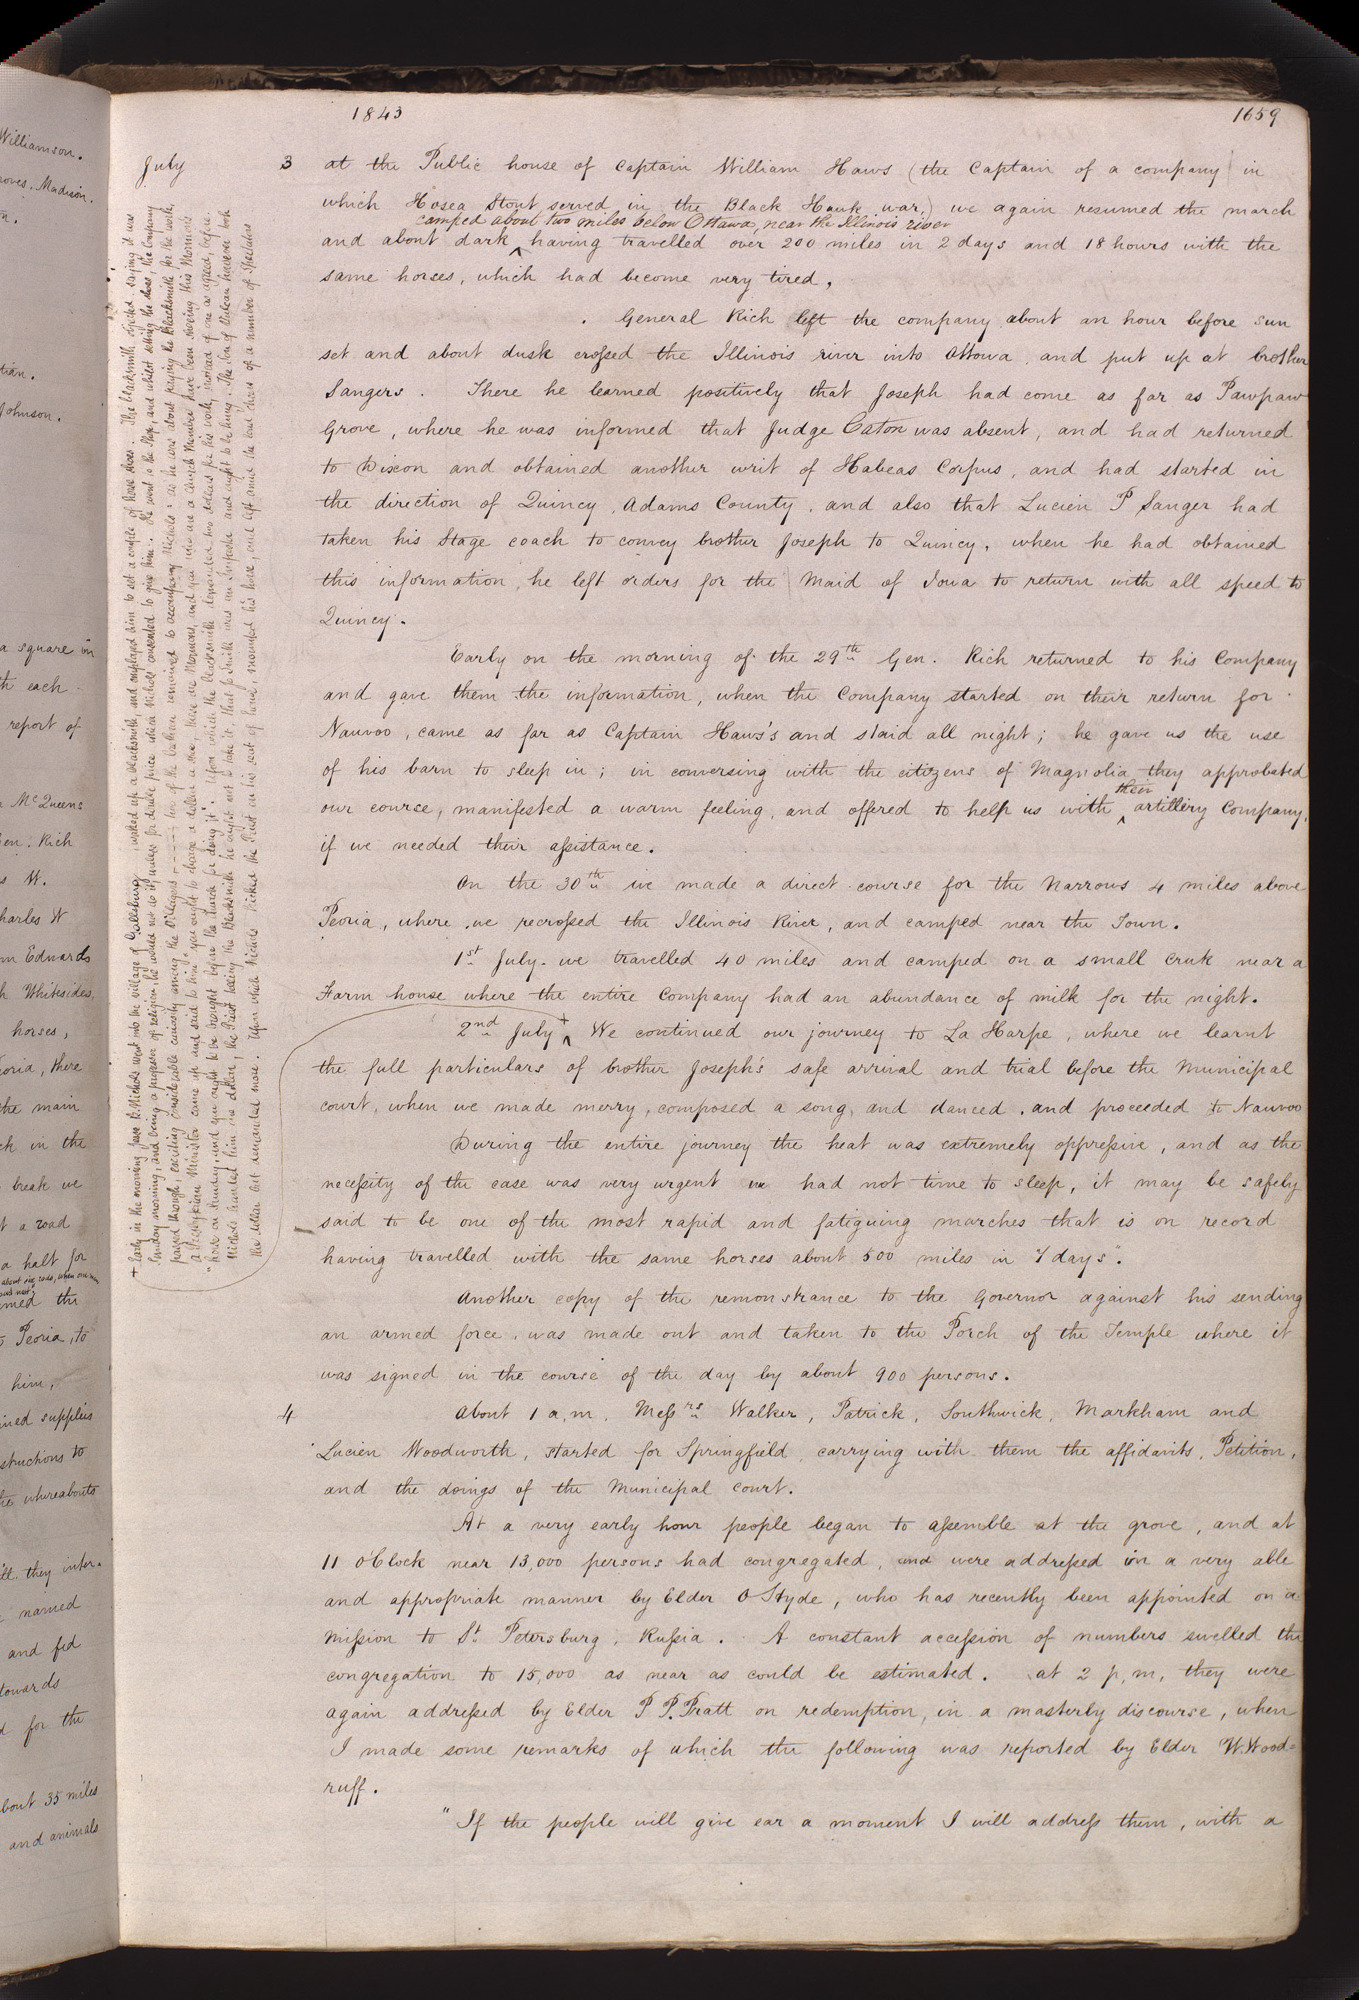 1843
1659
July
3 at the Public house of Captain William Haws (the Captain of a company in
which Hosea Stout served in the Black Hawk war;) we again resumed the march
camped about two miles below Ottawa, near the Illinois river
and about dark ^ having travelled over 200 miles in 2 days and 18 hours with the
same horses, which had become very tired,
General Rich left the company about an hour before sun
set and about dusk crossed the Illinois river into Ottowa and put up at brother
Sangers. There he learned positively that Joseph had come as far as Pawpaw
Grove, where he was informed that Judge Caton was absent, and had returned
to Dixon and obtained another writ of Habeas Corpus, and had started in
the direction of Quincy, Adams County, and also that Lucien P Sanger had
taken his Stage coach to convey brother Joseph to Quincy, when he had obtained
this information, he left orders for the Maid of Iowa to return with all speed to
Quincy.
Early on the morning of the 29th Gen. Rich returned to his Company
and gave them the information, when the Company started on their return for
Nauvoo, came as far as Captain Haws's and staid all night; he gave us the use
of his barn to sleep in; in conversing with the citizens of Magnolia they approbated
their
our course, manifested a warm feeling, and offered to help us with ^ artillery Company,
if we needed their assistance.
On the 30th we made a direct course for the Narrows 4 miles above
Peoria, where we recrossed the Illinois River, and camped near the Town.
1st July. we travelled 40 miles and camped on a small creek near a
Farm house where the entire Company had an abundance of milk for the night.
2nd July + ^ We continued our journey to La Harpe, where we learnt
the full particulars of brother Joseph's safe arrival and trial before the Municipal
court, when we made merry, composed a song, and danced, and proceeded to Nauvoo
During the entire journey the heat was extremely oppressive, and as the
necessity of the case was very urgent we had not time to sleep, it may be safely
said to be one of the most rapid and fatiguing marches that is on record
having travelled with the same horses about 500 miles in 7 days".
Another copy of the remonstrance to the Governor against his sending
an armed force, was made out and taken to the Porch of the Temple where it
was signed in the course of the day by about 900 persons.
4 About 1 a,m, Messrs Walker, Patrick, Southwick, Markham and
Lucien Woodworth, started for Springfield, carrying with them the affidavits, Petition,
and the doings of the Municipal court.
At a very early hour people began to assemble at the grove, and at
11 o'Clock near 13,000 persons had congregated, and were addressed in a very able
and appropriate manner by Elder O Hyde, who has recently been appointed on a
mission to St. Petersburg, Russia. A constant accession of numbers swelled the
congregation to 15,000 as near as could be estimated. at 2 p,m, they were
again addressed by Elder P P. Pratt on redemption, in a masterly discourse, when
I made some remarks of which the following was reported by Elder W. Wood=
ruff.
"If the people will give ear a moment I will address them, with a
+ Early in the morning Jesse B. Nichols went into the village of Galesburg, waked up a blacksmith, and employed him to set a couple of horse shoes. The blacksmith objected saying it was
Sunday morning, and being a professor of religion, he would not do it, unless for double price which Nichols consented to give him. He went to the Shop, and whilst setting the shoes, the Company
passed through, exciting considerable curiosity among the villagers ten of the brethren remained to accompany Nichols: as he was about paying the Blacksmith for his work,
a Presbyterian Minister came up and said to him "you ought to charge a dollar a shoe, these are Mormons, and you who are a Church Member have been shoeing this Mormon's
"horse on Sunday; and you ought to be brought before the Church for doing it". Upon which the blacksmith demanded two dollars for his work, instead of one as agreed, before.
Nichols handed him one dollar, the Priest telling the Blacksmith he ought not to take it, that Jo Smith was an Imposter and ought to be hung. The Son of Vulcan however took
the dollar but demanded more. Upon which Nichols kicked the Priest on his seat of honor, mounted his horse, and left amid the loud cheers of a number of Spectators
Williamson.
Johnson.
a square in
th each
report of
McQueens
en. Rich
s W.
harles W
m Edwards
h Whitesides,
horses,
oria, there
the main
ck in the
break we
t a road
a halt for
med the
Peoria, to
him,
ined supplies
structions to
the whereabouts
they inter-
named
and fed
towards
d for the
bout 35 miles
and animals